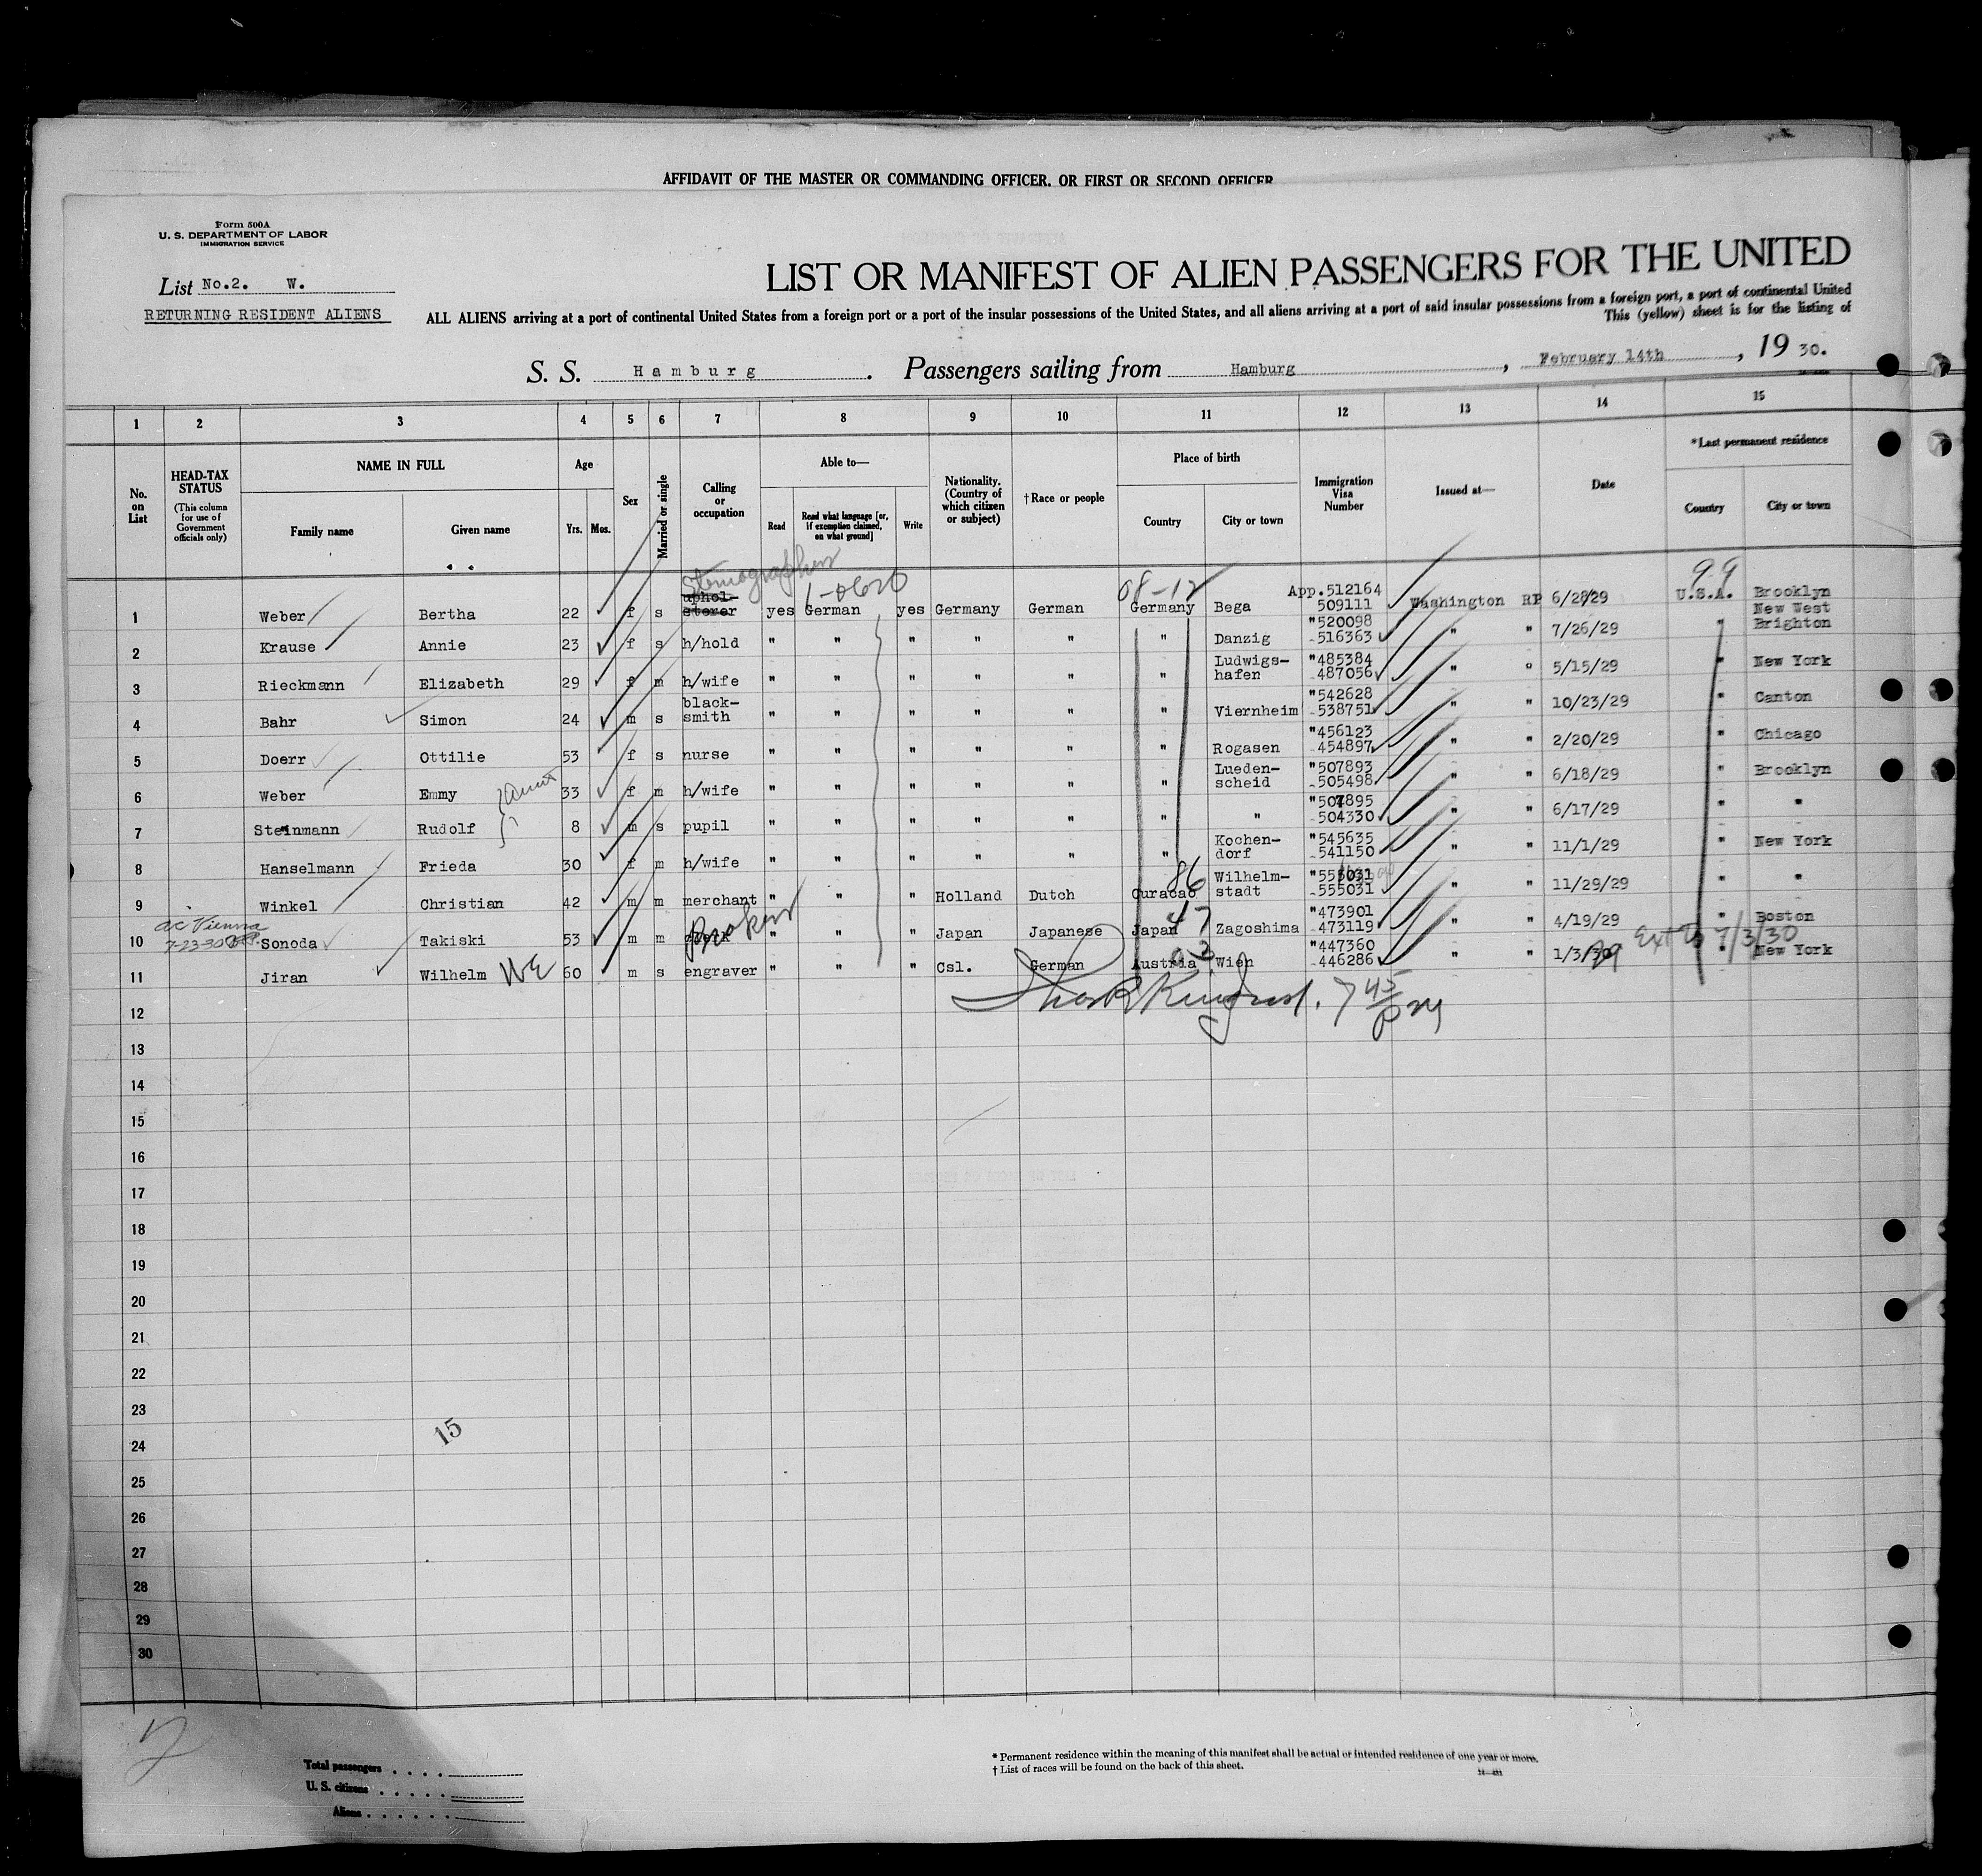 AFFIDAVIT OF THE MASTER OR COMMANDING OFFICER, OR FIRST OR SECOND OFFICER
Form 500A
U. S. DEPARTMENT OF LABOR
IMMIGRATION SERVICE
List No.2. W.
RETURNING RESIDENT ALIENS
LIST OR MANIFEST OF ALIEN PASSENGERS FOR THE UNITED
ALL ALIENS arriving at a port of continental United States from a foreign port or a port of the insular possessions of the United States, and all aliens arriving at a port of said insular possessions from a foreign port, a port of continental United
This (yellow) sheet is for the listing of
S. S. Hamburg. Passengers sailing from Hamburg, February 14th, 19 30.
1 2 3 4 5 6 7 8 9 10 11 12 13 14 15
No. on List
HEAD-TAX STATUS
(This column for use of Government officials only)
NAME IN FULL
Family name Given name
Age
Yrs. Mos.
Sex
Married or single
Calling or occupation
Able to—
Read
Read what language [or, if exemption claimed, on what ground]
Write
Nationality. (Country of which citizen or subject)
†Race or people
Place of birth
Country City or town
Immigration Visa Number
Issued at—
Date
*Last permanent residence
Country City or town
Stenographer
08-12
99
1 Weber Bertha 22 f s uphol-sterer yes German yes Germany German Germany Bega App.512164 509111 Washington RP 6/28/29 U.S.A. Brooklyn
2 Krause Annie 23 f s h/hold " " " " " " Danzig "520098 -516363 " " 7/26/29 " New West Brighton
3 Rieckmann Elizabeth 29 f m h/wife " " " " " " Ludwigs-hafen "485384 487056 " " 5/15/29 " New York
4 Bahr Simon 24 m s black-smith " " " " " " Viernheim "542628 -538751 " " 10/23/29 " Canton
5 Doerr Ottilie 53 f s nurse " " " " " " Rogasen "456123 -454897 " " 2/20/29 " Chicago
6 Weber Emmy 33 f m h/wife " " " " " " Lueden-scheid "507893 -505498 " " 6/18/29 " Brooklyn
aunt
7 Steinmann Rudolf 8 m s pupil " " " " " " " "507895 -504330 " " 6/17/29 " "
8 Hanselmann Frieda 30 f m h/wife " " " " " " Kochen-dorf "545635 -541150 " " 11/1/29 " New York
86
9 Winkel Christian 42 m m merchant " " " Holland Dutch Curacao Wilhelm-stadt -555031 " " 11/29/29 " "
ac Vienna
7-23-30
Broker
47
10 Sonoda Takiski 53 m m " " " Japan Japanese Japan Zagoshima "473901 -473119 " " 4/19/29 " Boston
Ext to 7/3/30
03
11 Jiran Wilhelm 60 m s engraver " " " Csl. German Austria Wien "447360 -446286 " " 1/3/29 " New York
7 45 PM
12
13
14
15
16
17
18
19
20
21
22
23
15
24
25
26
27
28
29
30
Total passengers
U. S. citizens
Aliens
* Permanent residence within the meaning of this manifest shall be actual or intended residence of one year or more.
† List of races will be found on the back of this sheet.